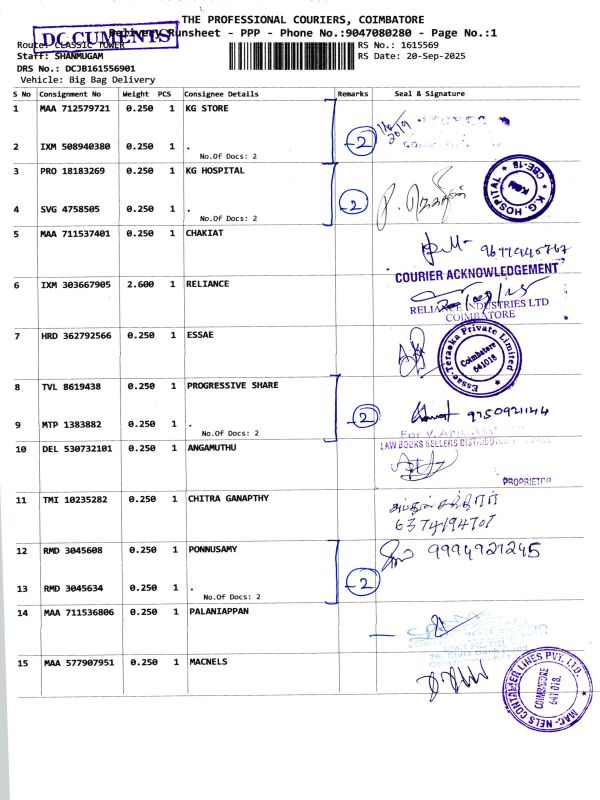 THE PROFESSIONAL COURIERS, COIMBATORE
DOCUMENTS
Delivery Runsheet - PPP - Phone No.:9047080280 - Page No.:1
Route: CLASSIC TOWER
RS No.: 1615569
Staff: SHANMUGAM
RS Date: 20-Sep-2025
DRS No.: DCJB161556901
Vehicle: Big Bag Delivery
S No Consignment No Weight PCS Consignee Details Remarks Seal & Signature
1 MAA 712579721 0.250 1 KG STORE
2 IXM 508940380 0.250 1 .
No.Of Docs: 2
2
3 PRO 18183269 0.250 1 KG HOSPITAL
K.G. HOSPITAL CBE-18
4 SVG 4758505 0.250 1 .
No.Of Docs: 2
2
5 MAA 711537401 0.250 1 CHAKIAT
COURIER ACKNOWLEDGEMENT
6 IXM 303667905 2.600 1 RELIANCE
RELIANCE INDUSTRIES LTD
COIMBATORE
7 HRD 362792566 0.250 1 ESSAE
Essae-Teraoka Private Limited
Coimbatore
641018
8 TVL 8619438 0.250 1 PROGRESSIVE SHARE
9750921144
9 MTP 1383882 0.250 1 .
No.Of Docs: 2
2
10 DEL 530732101 0.250 1 ANGAMUTHU
LAW BOOKS SELLERS
PROPRIETOR
11 TMI 10235282 0.250 1 CHITRA GANAPTHY
12 RMD 3045608 0.250 1 PONNUSAMY
9994921245
13 RMD 3045634 0.250 1 .
No.Of Docs: 2
2
14 MAA 711536806 0.250 1 PALANIAPPAN
15 MAA 577907951 0.250 1 MACNELS
MAC-NELS CONTAINER LINES PVT. LTD.
COIMBATORE
641 018.